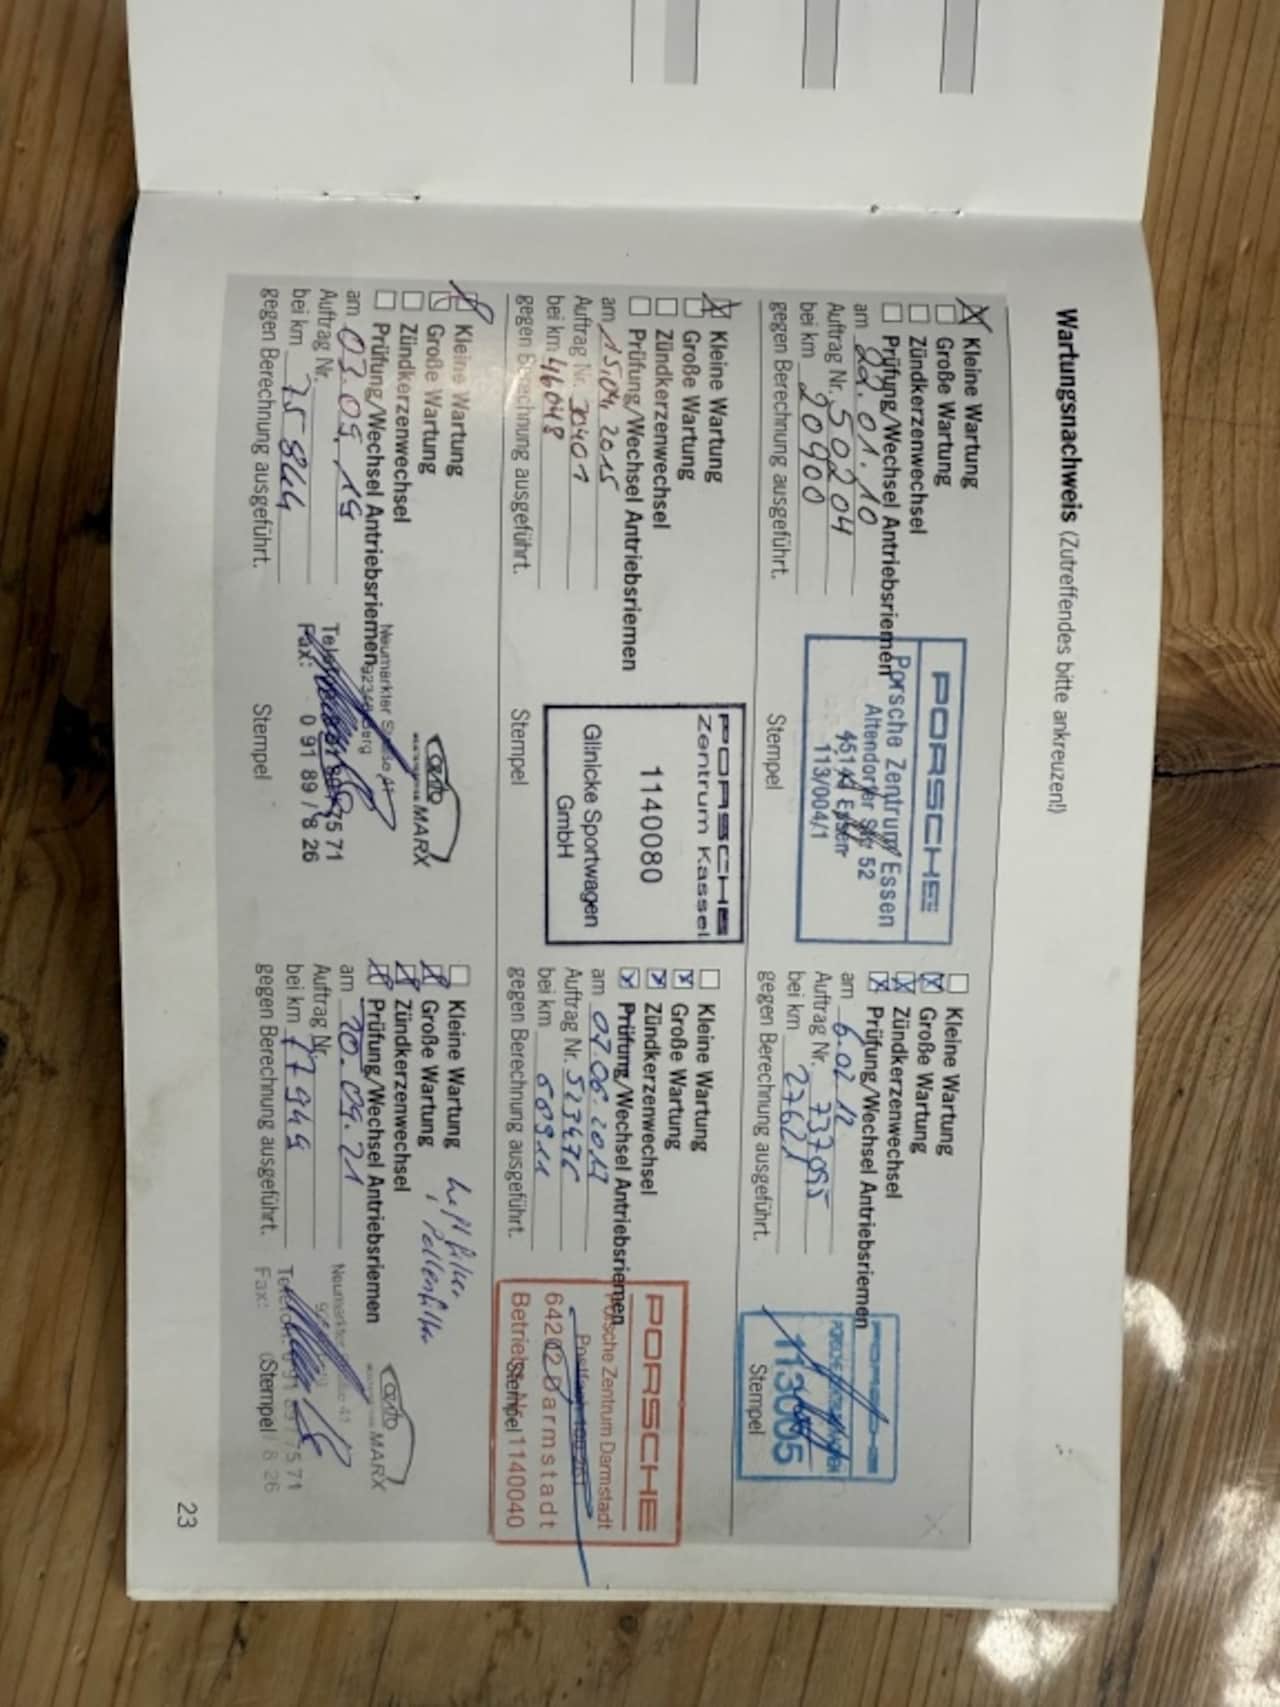 Wartungsnachweis (Zutreffendes bitte ankreuzen!)
Kleine Wartung
Große Wartung
Zündkerzenwechsel
Prüfung/Wechsel Antriebsriemen
am 22.01.10
Auftrag Nr. 50204
bei km 20900
gegen Berechnung ausgeführt.
PORSCHE
Porsche Zentrum Essen
Altendorfer Str. 52
Essen
113/004/1
Stempel
Kleine Wartung
Große Wartung
Zündkerzenwechsel
Prüfung/Wechsel Antriebsriemen
am 6.02.12
Auftrag Nr. 737095
bei km 27621
gegen Berechnung ausgeführt.
PORSCHE
113005
Stempel
Kleine Wartung
Große Wartung
Zündkerzenwechsel
Prüfung/Wechsel Antriebsriemen
am 15.04.2015
Auftrag Nr. 30401
bei km 46048
gegen Berechnung ausgeführt.
PORSCHE
Zentrum Kassel
1140080
Glinicke Sportwagen
GmbH
Stempel
Kleine Wartung
Große Wartung
Zündkerzenwechsel
Prüfung/Wechsel Antriebsriemen
am 07.06.2017
Auftrag Nr. 523476
bei km 60911
gegen Berechnung ausgeführt.
PORSCHE
Porsche Zentrum Darmstadt
Postfach
Darmstadt
Betriebs-Nr. 1140040
Stempel
Kleine Wartung
Große Wartung
Zündkerzenwechsel
Prüfung/Wechsel Antriebsriemen
am 03.05.19
Auftrag Nr.
bei km 75844
gegen Berechnung ausgeführt.
auto
MARX
Neumarkter Straße 41
75 71
Fax: 0 91 89 / 8 26
Stempel
Kleine Wartung
Große Wartung
Zündkerzenwechsel
Prüfung/Wechsel Antriebsriemen
am 10.09.21
Auftrag Nr.
bei km 77949
gegen Berechnung ausgeführt.
Luftfilter
Pollenfilter
auto
MARX
Neumarkter 41
Telefon: 0 91 89 / 75 71
Fax: 8 26
Stempel
23